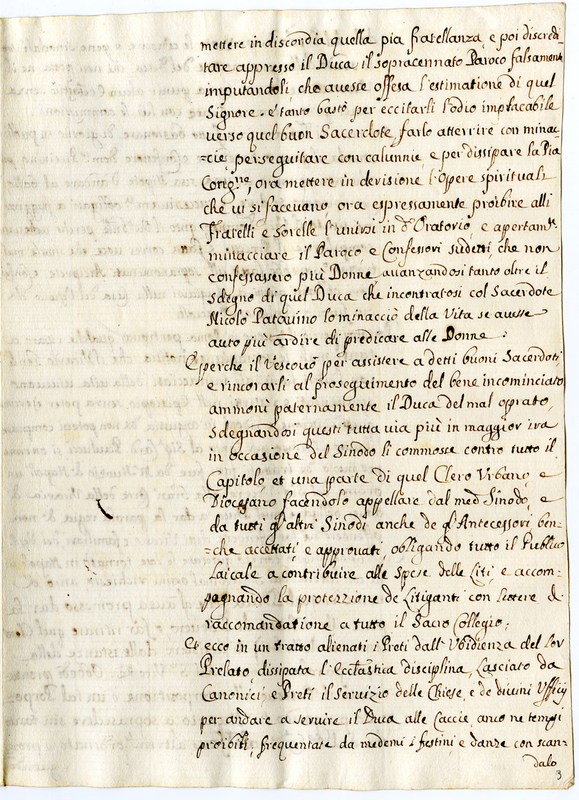 mettere in discordia quella pia fratellanza, e poi discredi-
tare appresso il Duca il sopracennato Paroco falsamente
imputandoli, che avesse offesa l'estimatione di quel
Signore. e tanto bastò per eccitarli l'odio implacabile
verso quel buon Sacerdote, farlo atterrire con minac
=cie perseguitare con calunnie e per dissipare la Pia
Congne, ora mettere in derisione l'Opere spirituali
che vi si facevano ora espressamente proibire alli
Fratelli e sorelle l'unirsi in do Oratorio, e apertamte
minacciare il Paroco e Confessori sudetti, che non
confessassero più Donne avanzandosi tanto oltre il
sdegno di quel Duca che incontratosi col Sacerdote
Nicolò Patavino lo minacciò della Vita se avesse
auto più ardire di predicare alle Donne.
E perche il Vescovo per assistere a detti buoni Sacerdoti,
e rincorarli al proseguimento del bene incominciato
ammonì paternamente il Duca del mal oprato,
sdegnandosi questi tutta via più in maggior ira
in occasione del Sinodo li commosse contro tutto il
Capitolo, et una parte di quel Clero Urbano, e
Diocesano facendolo appellare dal med. Sinodo, e
da tutti gl'altri Sinodi anche de gl'Antecessori ben-
=che accettati e approvati, obligando tutto il Publico
Laicale a contribuire alle Spese delle Liti, e accom-
pagnando la protezzione de Litiganti con Lettere di
raccomandatione a tutto il Sacro Collegio;
Et ecco in un tratto alienati i Preti dall'Ubidienza del lor
Prelato, dissipata l'Eccl͠astica disciplina, Lasciato da
Canonici, e Preti il Servizio delle Chiese, e de divini Uffitij
per andare a servire il Duca alle Caccie, anco ne tempi
proibiti, frequentate da medemi i festini, e danze con scan-
dalo
3